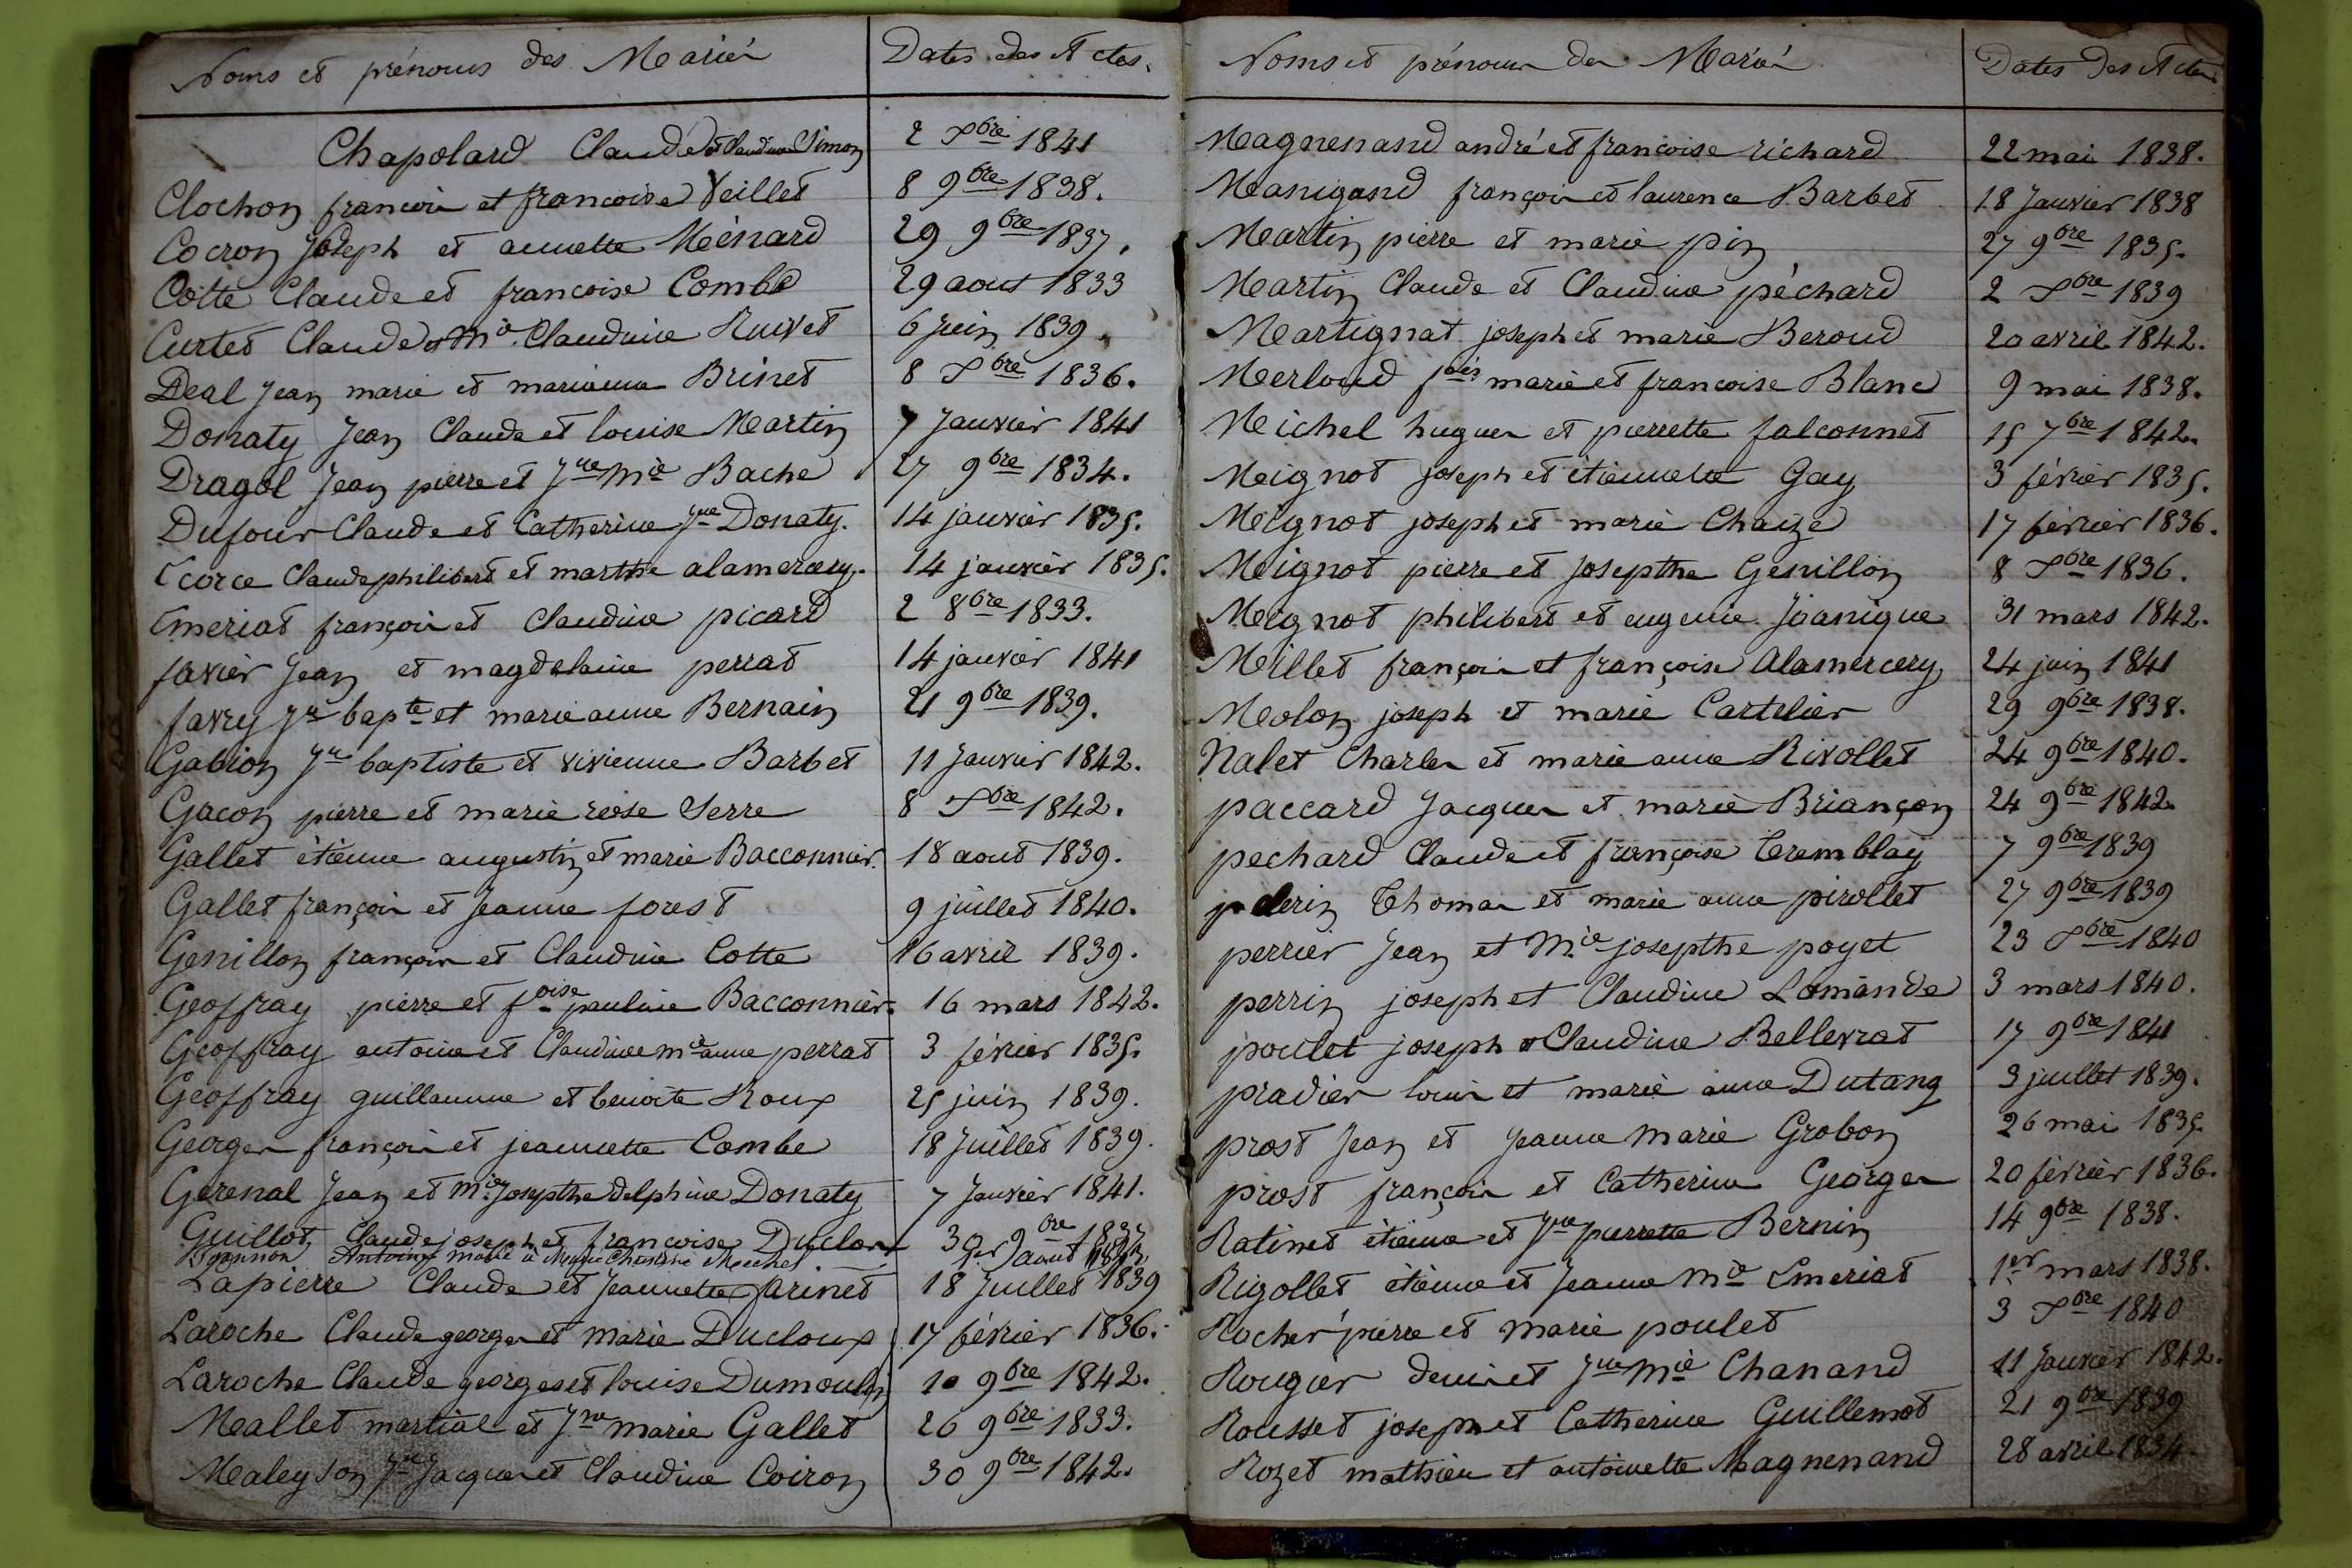 Noms et prénoms des Mariés Dates des Actes.
Chapolard Claude et Claudine Simon 2 Xbre 1841
Clochon françois et françoise Veillet 8 9bre 1838.
Cocron Joseph et annette Ménard 29 9bre 1837.
Cotte Claude et françoise Combe 29 aout 1833
Curtet Claude et Mie Claudine Ruivet 6 Juin 1839.
Déal Jean marie et marianne Brinet 8 Xbre 1836.
Donaty Jean Claude et louise Martin 7 Janvier 1841
Dragol Jean pierre et Jne Mie Bache 27 9bre 1834.
Dufour Claude et Catherine Jne Donaty. 14 janvier 1835.
Ecorce Claude philibert et marthe alamercery. 14 janvier 1835.
Emeriat françois et Claudine picard 2 8bre 1833.
favier Jean et magdelaine perrat 14 janvier 1841
favry Jn bapte et marie anne Bernain 21 9bre 1839.
Gabion Jn baptiste et vivienne Barbet 11 Janvier 1842.
Gacon pierre et marie rose Serre 8 Xbre 1842.
Gallet étienne augustin et marie Bacconnier. 18 aout 1839.
Gallet françois et Jeanne forest 9 juillet 1840.
Genillon françois et Claudine Cotte 16 avril 1839.
Geoffray pierre et foise pauline Bacconnier. 16 mars 1842.
Geoffray antoine et Claudine mie anne perrat 3 février 1835.
Geoffray guillaume et benoite Roux 25 juin 1839.
Georges françois et jeannette Combe 18 Juillet 1839.
Gerenal Jean et Mie Josepthe delphine Donaty 7 Janvier 1841.
Guillot Claude joseph et françoise Duclos 30 9bre 1837
Antoine marié à Marie Michel 1er aout
Lapierre Claude et Jeannette farinet 18 Juillet 1839
Laroche Claude georges et Marie Ducloux 17 février 1836.
Laroche Claude georges et louise Dumoulin 10 9bre 1842.
Mallet martial et Jne marie Gallet 26 9bre 1833.
Maleyson Jn Jacques et Claudine Coiron 30 9bre 1842.
Noms et prénoms des Mariés Dates des Actes
Magnenand andré et françoise richard 22 mai 1838.
Manigand françois et laurence Barbet 18 Janvier 1838
Martin pierre et marie pin 27 9bre 1835.
Martin Claude et Claudine péchard 2 Xbre 1839
Martignat joseph et marie Beroud 20 avril 1842.
Merloud fois marie et françoise Blanc 9 mai 1838.
Michel hugues et pierrette falconnet 15 7bre 1842.
Mignot joseph et étiennette Gay 3 février 1835.
Mignot joseph et marie Chaize 17 février 1836.
Mignot pierre et Josepthe Genillon 8 Xbre 1836.
Mignot philibert et eugenie Joanique 31 mars 1842.
Millet françois et françoise Alamercery 24 juin 1841
Molon joseph et marie Cartelier 29 9bre 1838.
Nalet Charles et marie anne Rivollet 24 9bre 1840.
paccard Jacques et marie Briançon 24 9bre 1842.
pechard Claude et françoise Tremblay 7 9bre 1839
pelerin Thomas et marie anne pirollet 27 9bre 1839
perrier Jean et Mie josepthe poyet 23 Xbre 1840
perrin joseph et Claudine Lamande 3 mars 1840.
poulet joseph et Claudine Bellevrat 17 9bre 1841
pradier louis et marie anne Dutang 3 juillet 1839.
prost Jean et Jeanne Marie Grobon 26 mai 1835.
prost françois et Catherine Georges 20 février 1836.
Ratinet étienne et Jne pierrette Bernin 14 9bre 1838.
Rigollet étienne et Jeanne Mie Emeriat 1er mars 1838.
Rocher pierre et Marie poulet 3 Xbre 1840
Rougier denis et Jne Mie Chanand 11 Janvier 1842.
Rousset joseph et Catherine Guillemot 21 9bre 1839
Rozet mathieu et antoinette Magnenand 28 avril 1834.